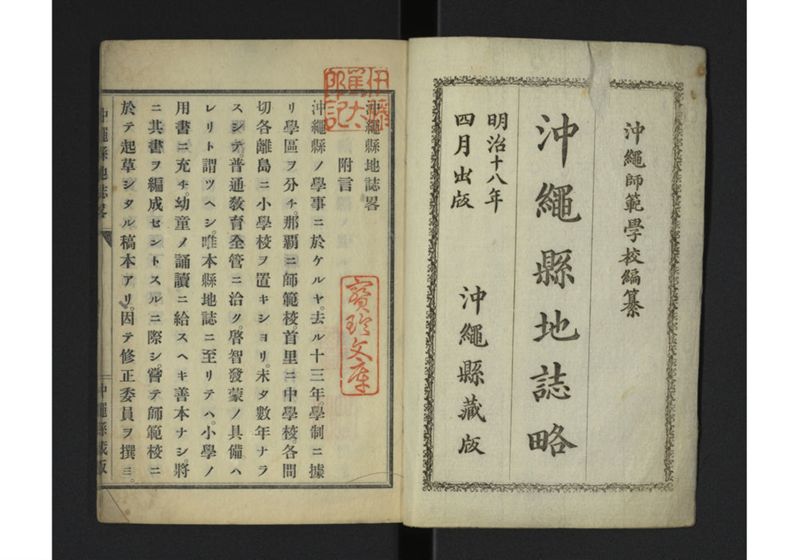 沖繩師範學校編纂
沖繩縣地誌略
明治十八年
四月出版
沖繩縣藏版
沖繩縣地誌畧
附言
沖繩縣ノ學事ニ於ケルヤ去ル十三年。學制ニ據
リ學區ヲ分チ。那覇ニ師範校。首里ニ中學校。各間
切各離島ニ小學校ヲ置キシヨリ。未タ數年ナラ
スシテ普通敎育全管ニ治ク。啓智發蒙ノ具備ハ
レリト謂ツヘシ。唯本縣地誌ニ至リテハ。小學ノ
用書ニ充チ。幼童ノ誦讀ニ給スヘキ善本ナシ。將
ニ其書ヲ編成セントスルニ際シ。嘗テ師範校ニ
於テ起草シタル稿本アリ。因テ修正委員ヲ撰ミ。
沖繩縣地誌畧
沖繩縣藏版
寶玲文庫